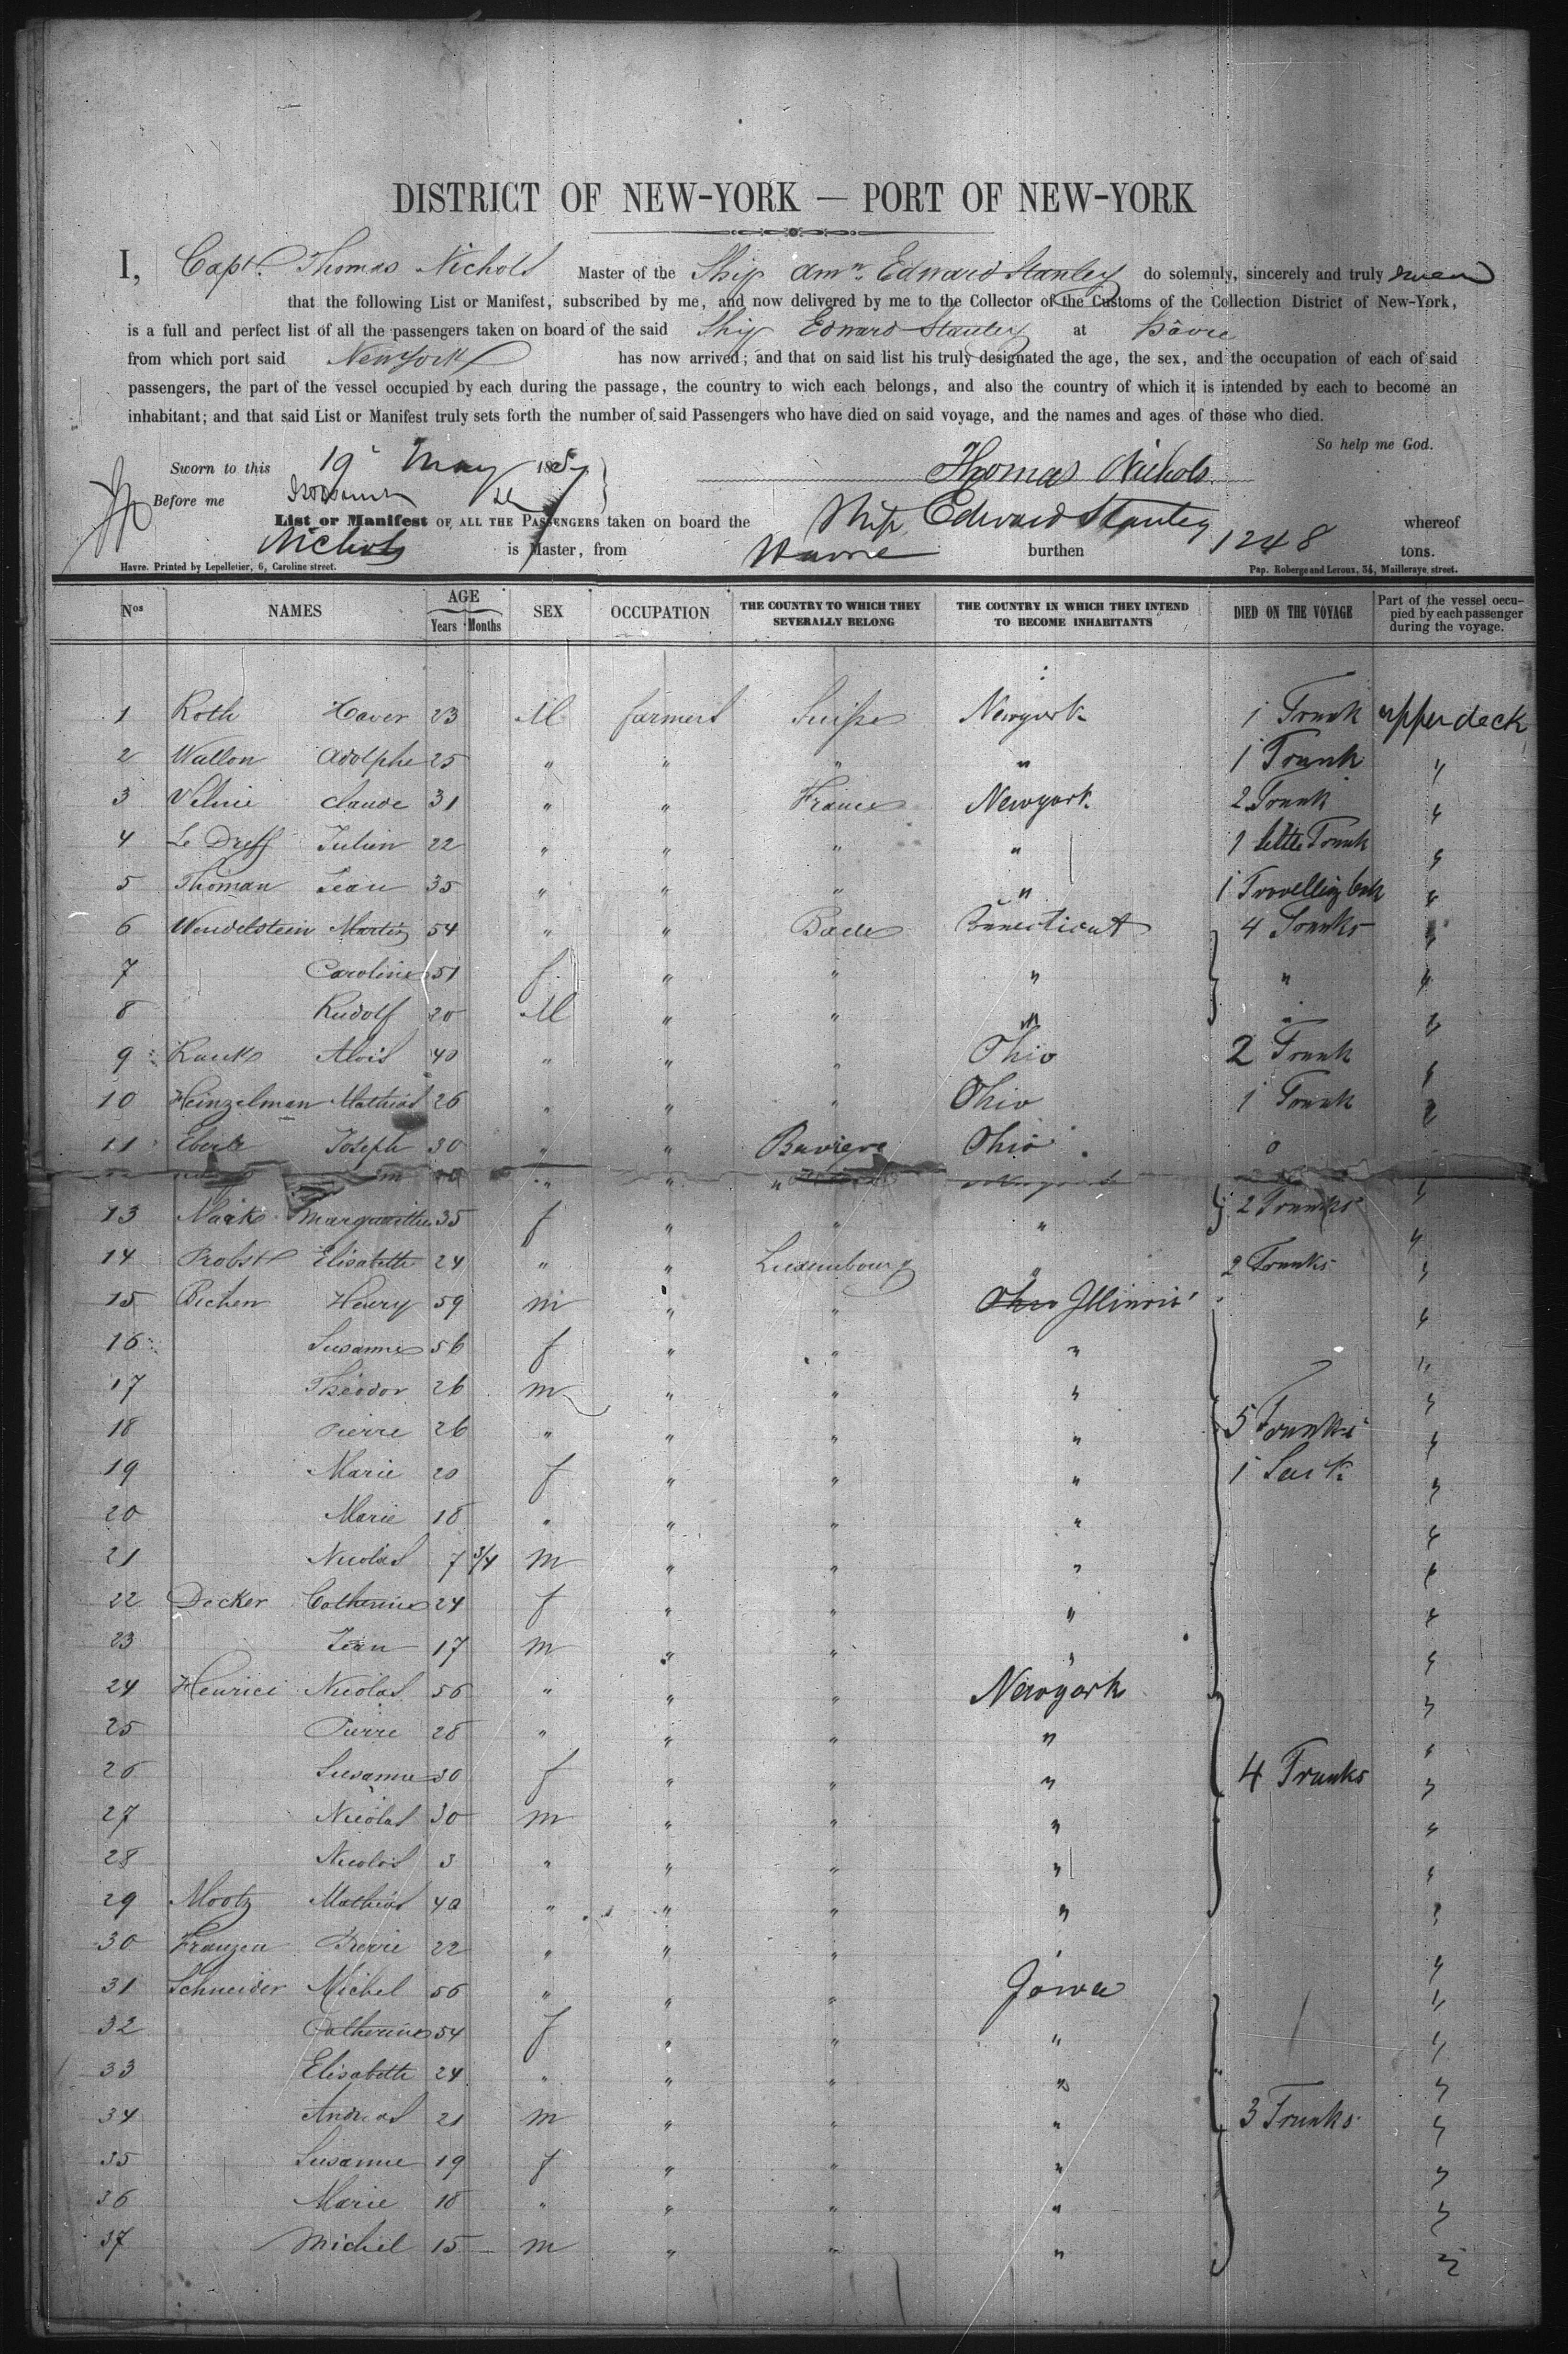 DISTRICT OF NEW-YORK — PORT OF NEW-YORK
I, Capt. Thomas Nichols Master of the Ship Amn. Edward Stanley do solemnly, sincerely and truly swear
that the following List or Manifest, subscribed by me, and now delivered by me to the Collector of the Customs of the Collection District of New-York,
is a full and perfect list of all the passengers taken on board of the said Ship Edward Stanley at Hâvre
from which port said NewYork has now arrived; and that on said list his truly designated the age, the sex, and the occupation of each of said
passengers, the part of the vessel occupied by each during the passage, the country to wich each belongs, and also the country of which it is intended by each to become an
inhabitant; and that said List or Manifest truly sets forth the number of said Passengers who have died on said voyage, and the names and ages of those who died.
So help me God.
Sworn to this 19 May 185
Thomas Nichols
Before me
List or Manifest OF ALL THE PASSENGERS taken on board the Ship Edward Stanley whereof
Nichols is Master, from Havre burthen 1248 tons.
Havre. Printed by Lepelletier, 6, Caroline street. Pap. Roberge and Leroux, 34, Mailleraye street.
Nos NAMES AGE Years Months SEX OCCUPATION THE COUNTRY TO WHICH THEY SEVERALLY BELONG THE COUNTRY IN WHICH THEY INTEND TO BECOME INHABITANTS DIED ON THE VOYAGE Part of the vessel occupied by each passenger during the voyage.
1 Roth Xaver 23 M farmers Suisse Newyork 1 Trunk upper deck
2 Wallon Adolphe 25 " " " " 1 Trunk "
3 Claude 31 " " France Newyork 2 Trunk "
4 Le Dreff Julien 22 " " " " 1 little Trunk "
5 Thoman Jean 35 " " " " 1 Travelling "
6 Wendelstein Martin 54 " " Bade Connecticut 4 Trunks "
7 Caroline 51 f " " " " "
8 Rudolf 20 M " " " " "
9 Alois 40 " " " Ohio 2 Trunk "
10 Heinzelman Mathias 26 " " " Ohio 1 Trunk "
11 Eberle Joseph 30 " " Baviere Ohio 0
" " " "
13 Margarithe 35 f " " " 2 Trunks "
14 Probst Elisabette 24 " " Luxembourg " 2 Trunks "
15 Bichen Henry 59 m " " Ohio Illinois "
16 Susanne 56 f " " " "
17 Theodor 26 m " " " "
18 Pierre 26 " " " " 5 Trunks "
19 Marie 20 f " " " 1 Sack "
20 Marie 18 " " " " "
21 Nicolas 7 3/4 m " " " "
22 Decker Catherine 24 f " " " "
23 Jean 17 m " " " "
24 Henrici Nicolas 56 " " " Newyork "
25 Pierre 28 " " " " "
26 Susanne 30 f " " " 4 Trunks "
27 Nicolas 30 m " " " "
28 Nicolas 3 " " " " "
29 Mootz Mathias 40 " " " " "
30 Franzen Pierre 22 " " " " "
31 Schneider Michel 56 " " " Jowa "
32 Catherine 54 f " " " "
33 Elisabette 24 " " " " "
34 Andreas 21 m " " " 3 Trunks "
35 Susanne 19 f " " " "
36 Marie 18 " " " " "
37 Michel 15 m " " " "